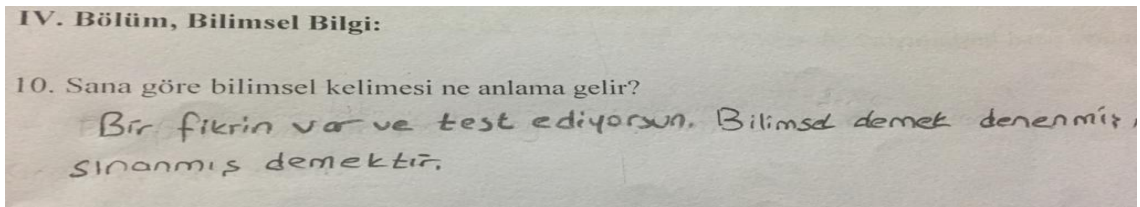 IV. Bölüm, Bilimsel Bilgi:
10. Sana göre bilimsel kelimesi ne anlama gelir?
Bir fikrin var ve test ediyorsun. Bilimsel demek denenmiş,
sınanmış demektir.